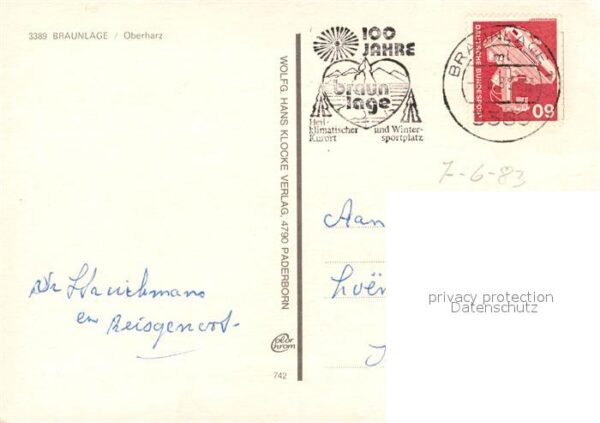 3389 BRAUNLAGE / Oberharz
WOLFG. HANS KLOCKE VERLAG, 4790 PADERBORN
color chrom
742
100 JAHRE
braun
lage
Heil-
klimatischer
Kurort
und Winter-
sportplatz
BRAUNLAGE
DEUTSCHE BUNDESPOST
60
7-6-83
Aan
privacy protection
Datenschutz
en Reisgenoot